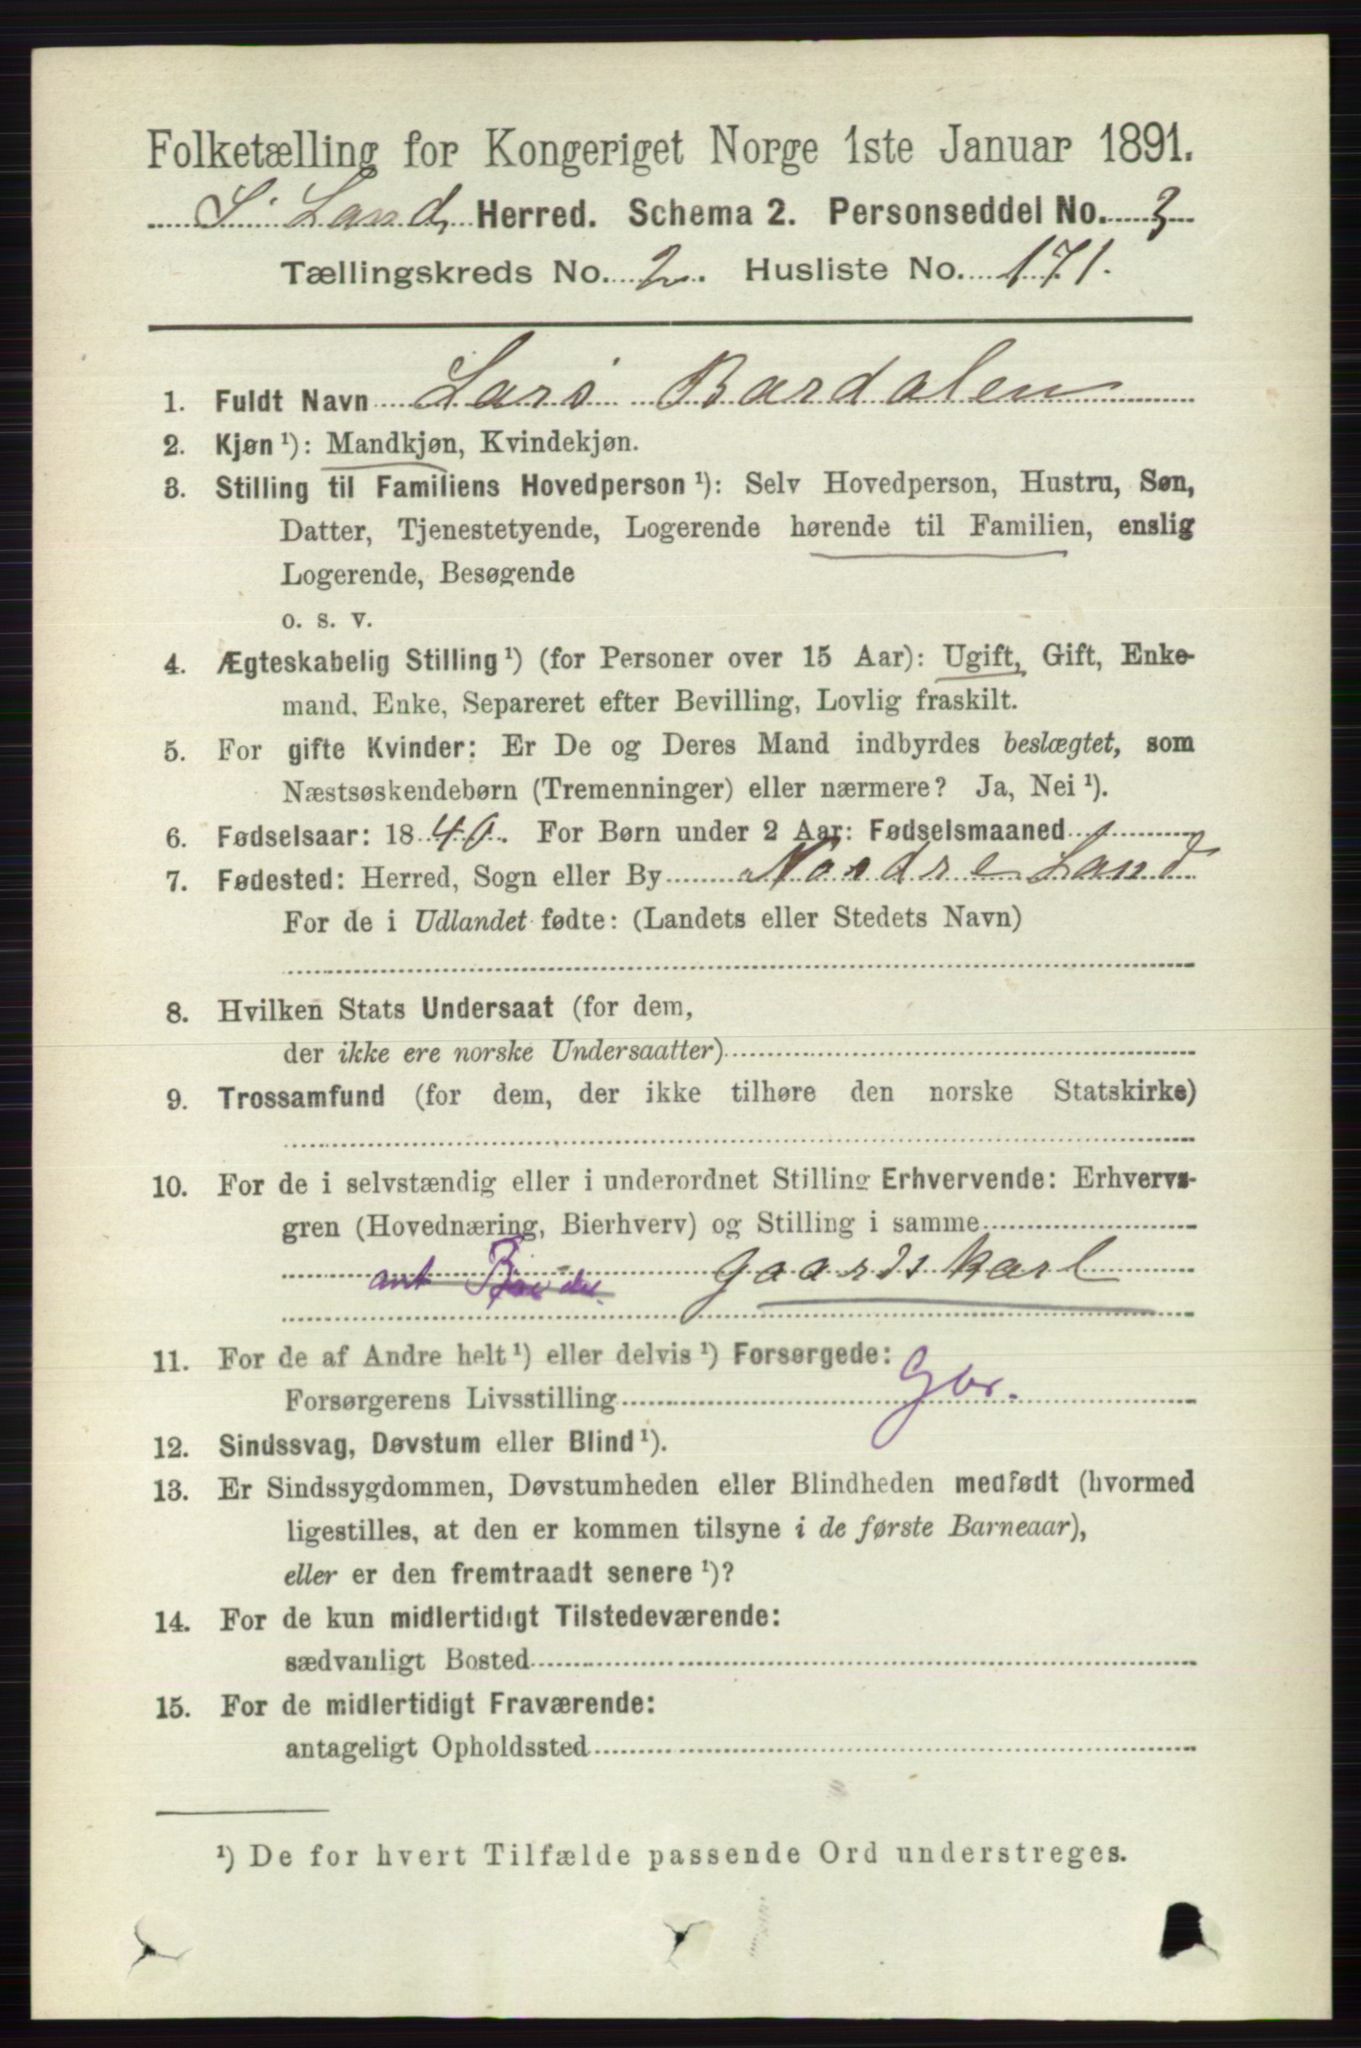 Folketælling for Kongeriget Norge 1ste Januar 1891.
S. Land Herred. Schema 2. Personseddel No. 3
Tællingskreds No. 2. Husliste No. 171.
1. Fuldt Navn Lars Bardalen
2. Kjøn ¹): Mandkjøn, Kvindekjøn.
3. Stilling til Familiens Hovedperson ¹): Selv Hovedperson, Hustru, Søn,
Datter, Tjenestetyende, Logerende hørende til Familien, enslig
Logerende, Besøgende
o. s. v.
4. Ægteskabelig Stilling ¹) (for Personer over 15 Aar): Ugift, Gift, Enke-
mand, Enke, Separeret efter Bevilling, Lovlig fraskilt.
5. For gifte Kvinder: Er De og Deres Mand indbyrdes beslægtet, som
Næstsøskendebørn (Tremenninger) eller nærmere? Ja, Nei ¹).
6. Fødselsaar: 1840. For Børn under 2 Aar: Fødselsmaaned
7. Fødested: Herred, Sogn eller By Nordre Land
For de i Udlandet fødte: (Landets eller Stedets Navn)
8. Hvilken Stats Undersaat (for dem,
der ikke ere norske Undersaatter)
9. Trossamfund (for dem, der ikke tilhøre den norske Statskirke)
10. For de i selvstændig eller i underordnet Stilling Erhvervende: Erhvervs-
gren (Hovednæring, Bierhverv) og Stilling i samme
Gaardskarl
11. For de af Andre helt ¹) eller delvis ¹) Forsørgede:
Forsørgerens Livsstilling
12. Sindssvag, Døvstum eller Blind ¹).
13. Er Sindssygdommen, Døvstumheden eller Blindheden medfødt (hvormed
ligestilles, at den er kommen tilsyne i de første Barneaar),
eller er den fremtraadt senere ¹)?
14. For de kun midlertidigt Tilstedeværende:
sædvanligt Bosted
15. For de midlertidigt Fraværende:
antageligt Opholdssted
¹) De for hvert Tilfælde passende Ord understreges.